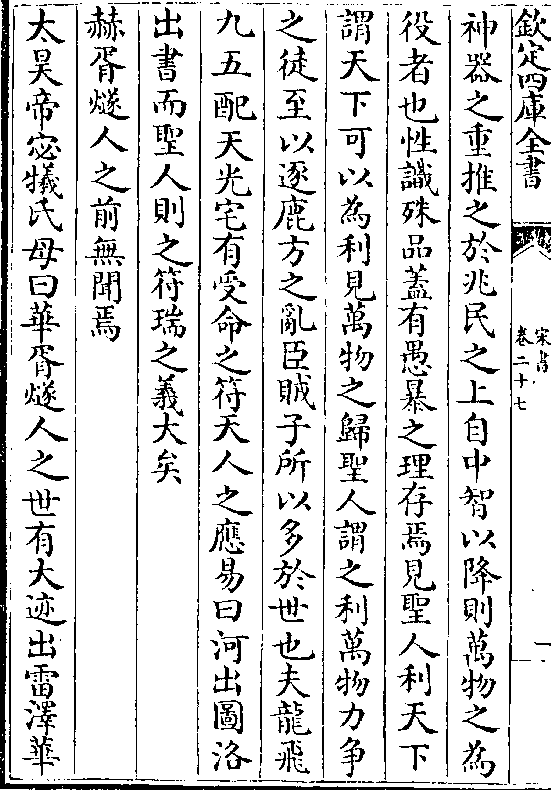 欽定四庫全書
宋書
卷二十七
一
神器之重推之於兆民之上自中智以降則萬物之為
役者也性識殊品蓋有愚暴之理存焉見聖人利天下
謂天下可以為利見萬物之歸聖人謂之利萬物力争
之徒至以逐鹿方之亂臣賊子所以多於世也夫龍飛
九五配天光宅有受命之符天人之應易曰河出圖洛
出書而聖人則之符瑞之義大矣
赫胥燧人之前無聞焉
太昊帝宓犧氏母曰華胥燧人之世有大迹出雷澤華